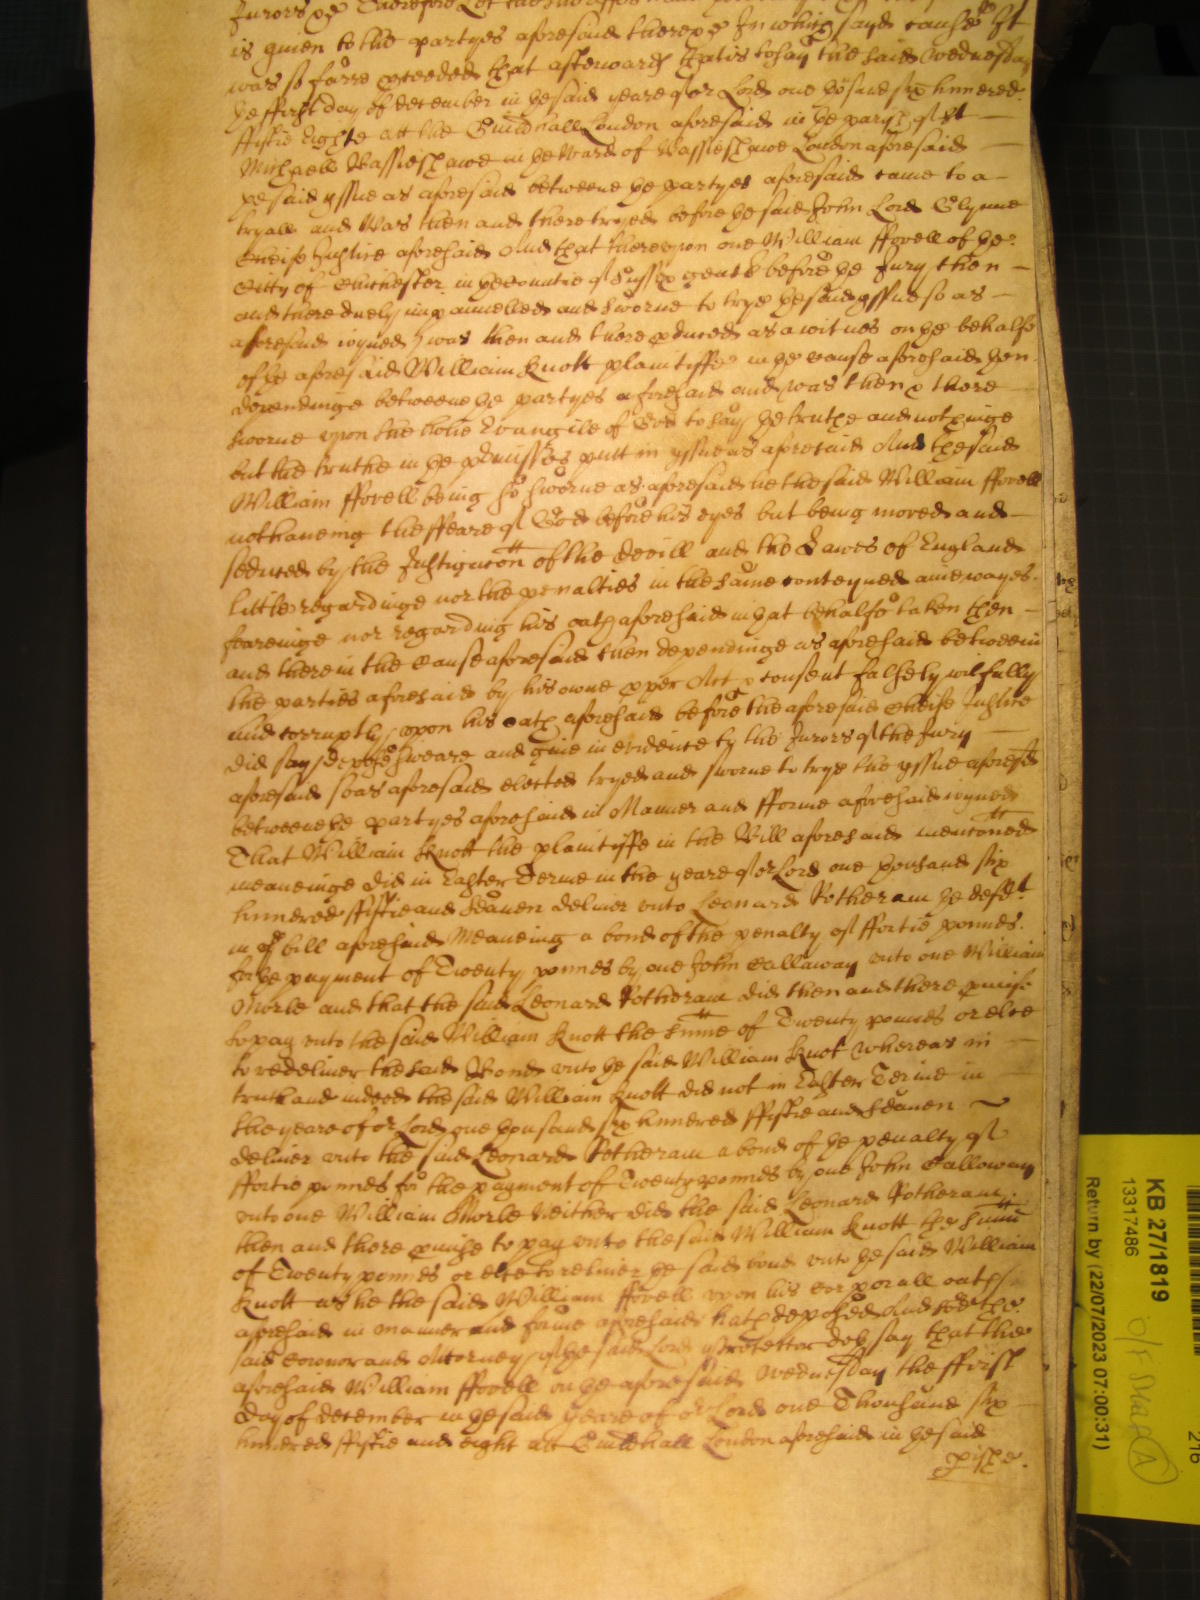 Jurors &c Therefore Let
is given to the partyes aforesaid there &c In which said cause it
was so farre proceeded that afterwards that is to say the said Wednesday
the ffirst day of December in the said yeare of or Lord one thousand six hundred
ffiftie Eighte att the Guildhall London aforesaid in the parish of St
Michaell Bassieshawe in the Ward of Bassieshawe London aforesaid
the said yssue as aforesaid betweene the partyes aforesaid came to a
tryall and Was then and there tryed before the said John Lord Glynne
Cheife Justice aforesaid And that thereupon one William ffovell of the
Citty of Chichester in the Countie of Sussex gent before the Jury then
and there duely impannelled and sworne to trye the said yssue so as
aforesaid ioyned was then and there produced as a witnes on the behalfe
of the aforesaid William Knott plaintiffe in the cause aforesaid then
dependinge betweene the partyes aforesaid and was then & there
sworne upon the holie Evangile of God to say the truthe and nothinge
but the truthe in the pmisses putt in yssue as aforesaid And the said
William ffovell being so sworne as aforesaid he the said William ffovell
not haveing the ffeare of God before his eyes but being moved and
seduced by the Instigacon of the Devill and the Lawes of England
little regardinge nor the penalties in the same conteyned anie wayes
feareinge nor regarding his oath aforesaid in that behalfe taken then
and there in the Cause aforesaid then dependinge as aforesaid betweene
the parties aforesaid by his owne pper Act & consent falsely wilfully
and corruptly upon his oath aforesaid before the aforesaid Cheife Justice
did say depose sweare and give in evidence to the Jurors of the Jury
aforesaid so as aforesaid elected tryed and sworne to trye the yssue aforesd
betweene the partyes aforesaid in Manner and fforme aforesaid ioyned
That William Knott the plaintiffe in the Bill aforesaid menconed
meaneinge did in Easter Terme in the yeare of or Lord one thousand six
hundred ffiftie and Seaven deliver unto Leonard Rotheram the defdt
in the bill aforesaid Meaneing a bond of the penalty of ffortie pounds
for the payment of Twenty pounds by one John Callaway unto one William
Morle and that the said Leonard Rotheram did then and there pmise
to pay unto the said William Knott the sume of Twenty pounds or else
to redeliver the said Bond unto the said William Knot whereas in
truth and indeed the said William Knott did not in Easter Terme in
the yeare of or Lord one thousand six hundred ffiftie and Seaven
deliver unto the said Leonard Rotheram a bond of the penalty of
ffortie pounds for the payment of Twenty pounds by one John Calloway
unto one William Morle Neither did the said Leonard Rotheram
then and there pmise to pay unto the said William Knott the sume
of Twenty pounds or else to reliver the said bond unto the said William
Knott as he the said William ffovell upon his corporall oath
aforesaid in manner and forme aforesaid hath deposed And soe the
said Coronor and Attorney of the said Lord Protector doth say that the
aforesaid William ffovell on the aforesaid Wednesday the ffirst
day of December in the said yeare of or Lord one Thousand six
hundred ffiftie and eight att Guildhall London aforesaid in the said
pishe
KB 27/1819
13317486
Return by (22/07/2023 07:00:31)
216